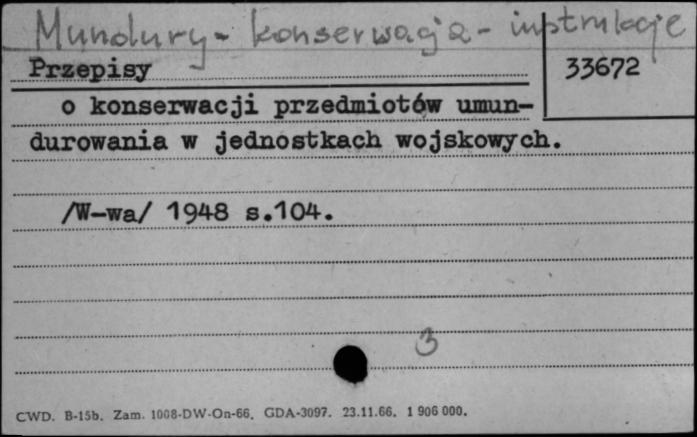 Mundury - konserwacja - instrukcje
Przepisy
33672
o konserwacji przedmiotów umun-
durowania w jednostkach wojskowych.
/W-wa/ 1948 s.104.
3
CWD. B-15b. Zam. 1008-DW-On-66. GDA-3097. 23.11.66. 1 906 000.